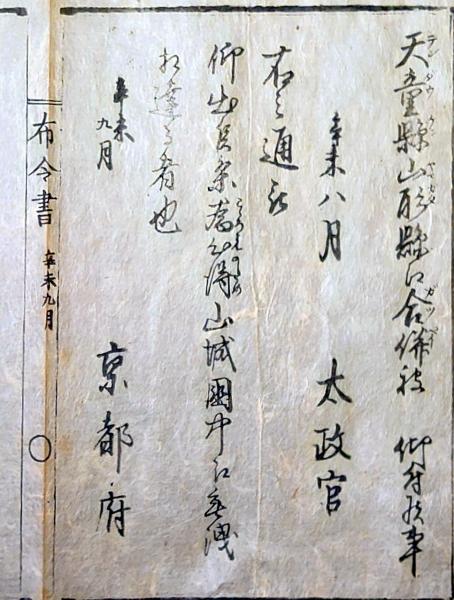 天童縣山形縣江合併被 仰付候事
辛未八月 太政官
右之通被
仰出候条為心得山城國中江無洩
相達る者也
辛未
九月 京都府
布令書 辛未九月 〇